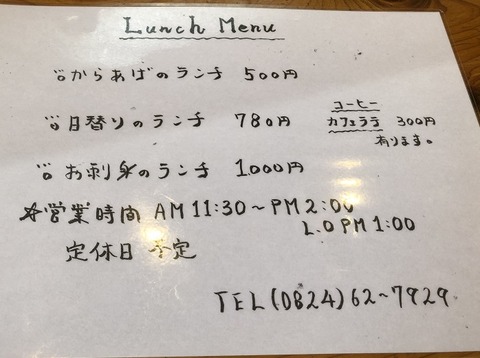 Lunch Menu
からあげのランチ 500円
日替りのランチ 780円
コーヒー
カフェラテ 300円
有ります。
お刺身のランチ 1000円
☆営業時間 AM 11:30～PM 2:00
L.O PM 1:00
定休日 不定
TEL (0824) 62-7929